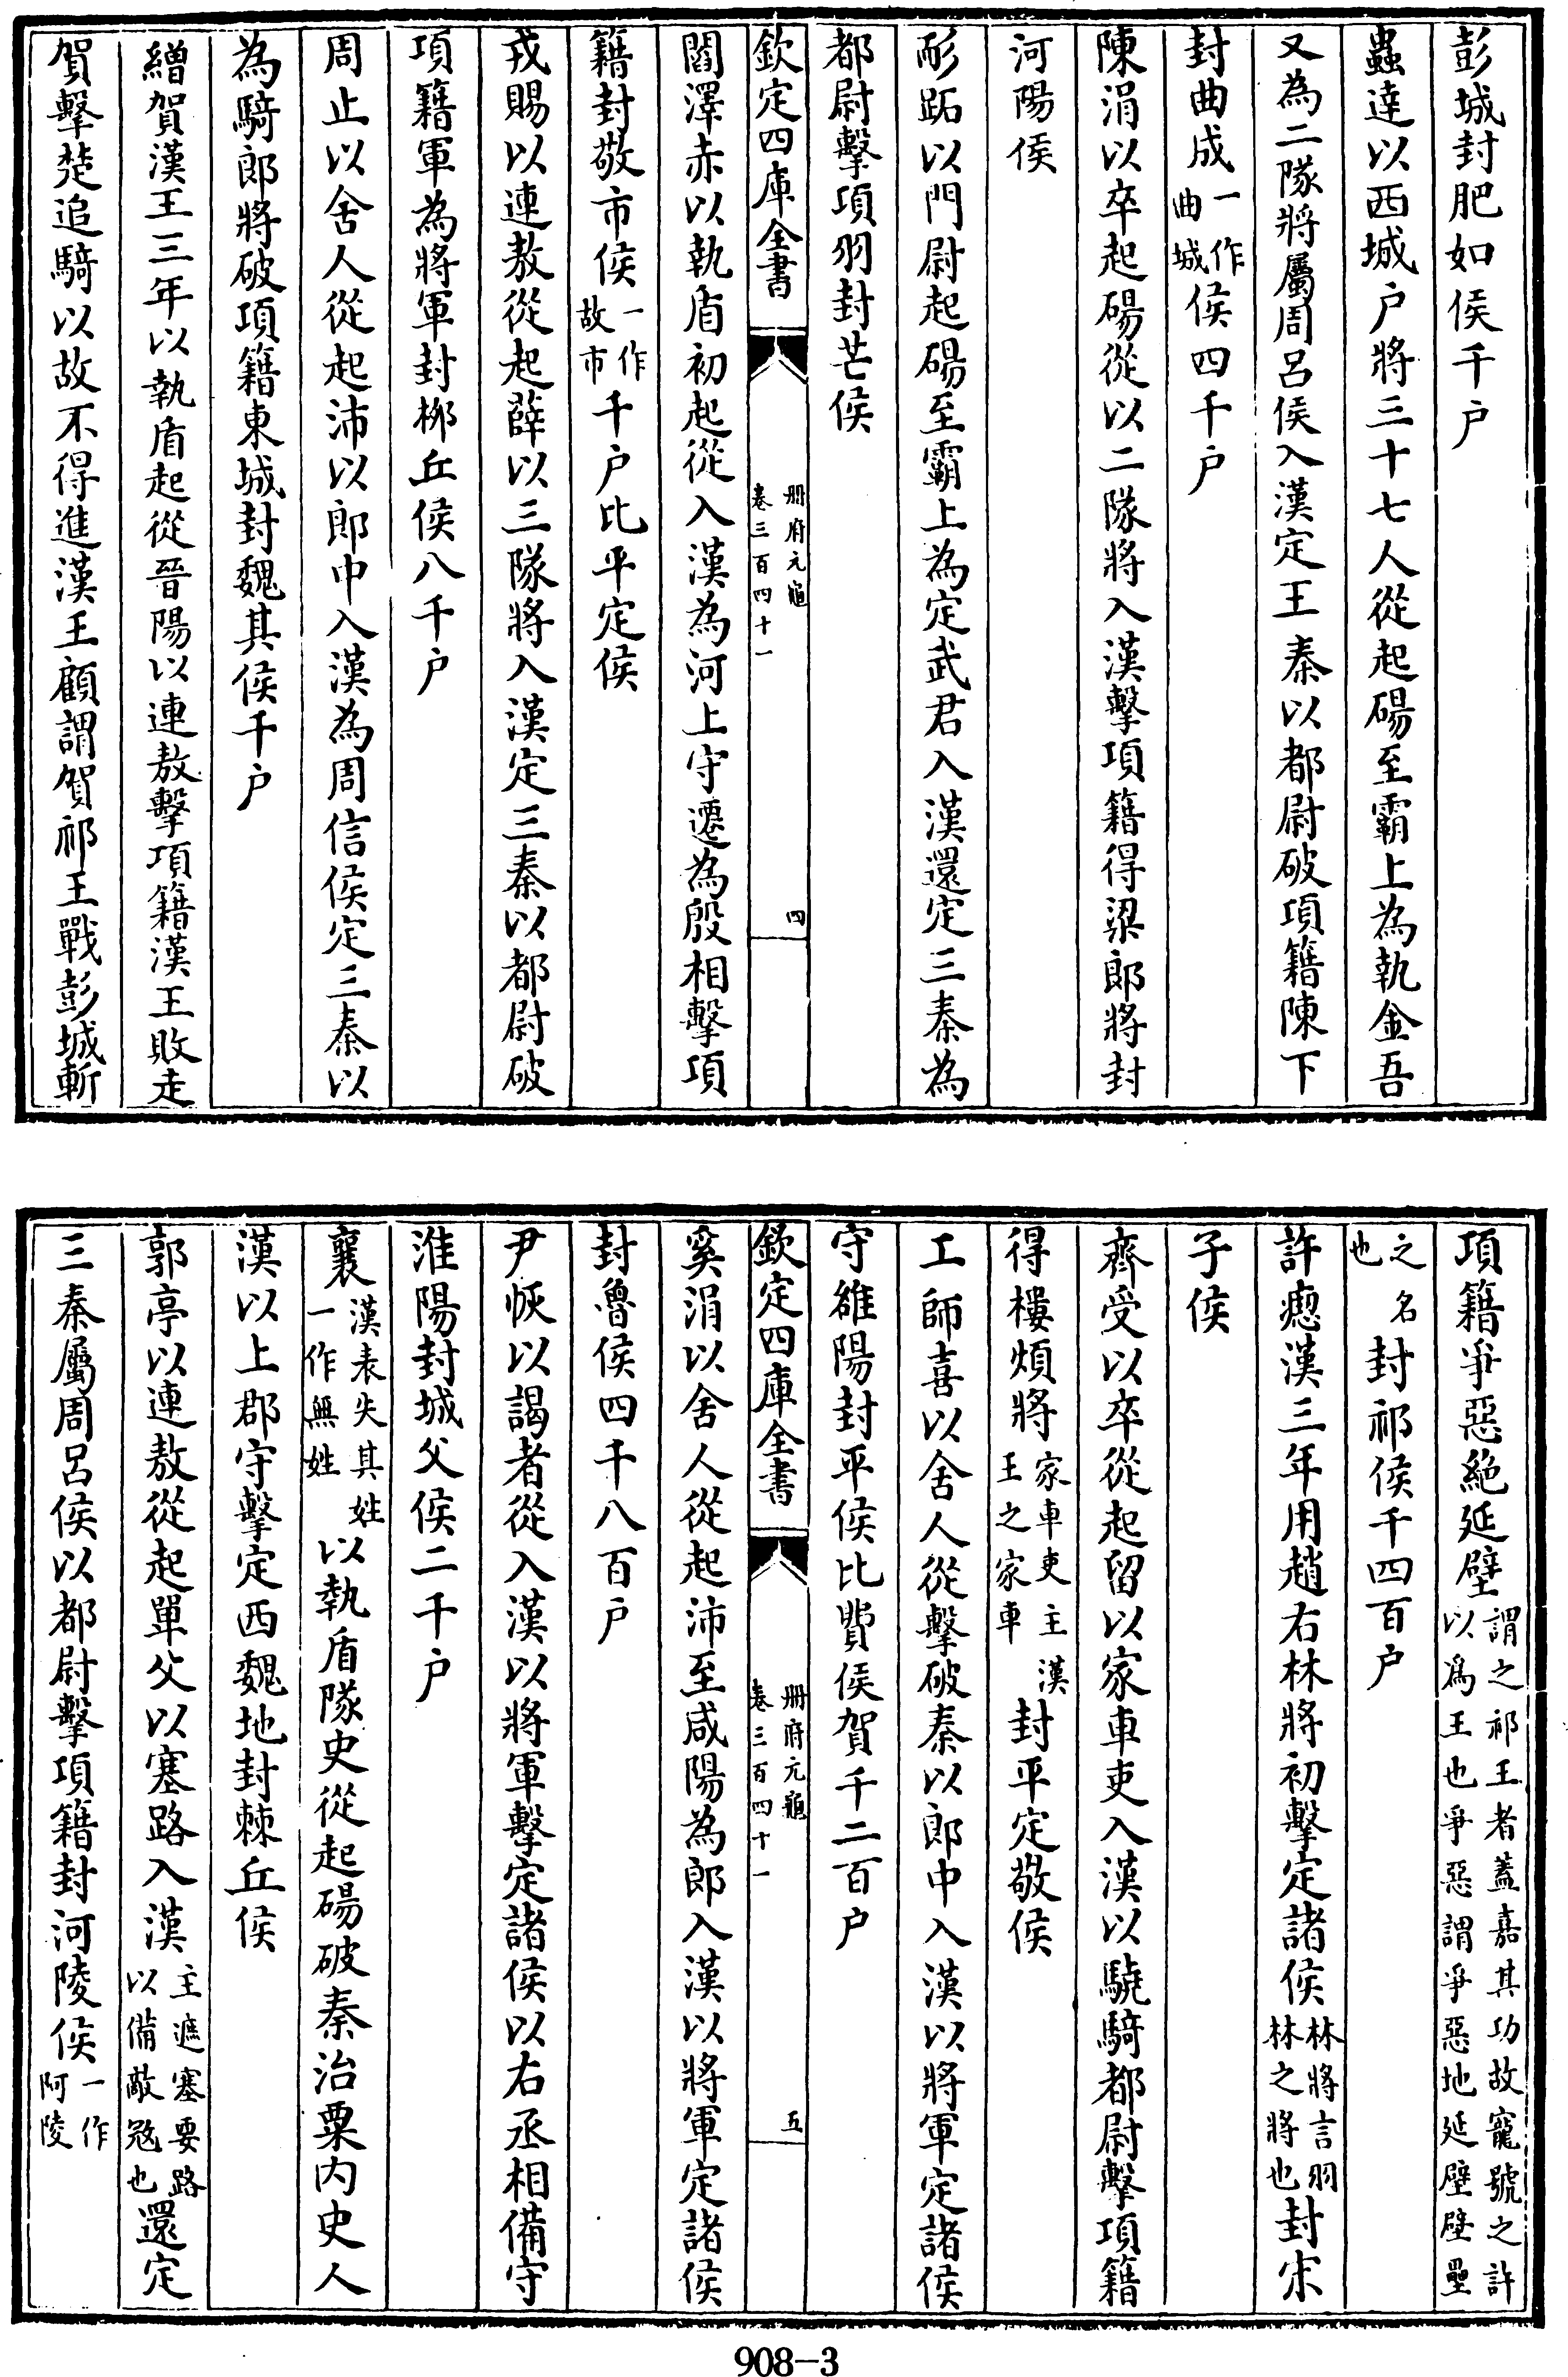 彭城封肥如侯千户
蟲逹以西城户將三十七人從起碭至霸上為執金吾
又為二隊將屬周呂侯入漢定王秦以都尉破項籍陳下
封曲成一作曲城侯四千户
陳涓以卒起碭從以二隊將入漢擊項籍得梁郎將封
河陽侯
耏跖以門尉起碭至霸上為定武君入漢還定三秦為
都尉擊項羽封芒侯
欽定四庫全書 册府元龜 卷三百四十一 四
閻澤赤以執盾初起從入漢為河上守遷為殷相擊項
籍封敬市侯一作故市千户比平定侯
戎賜以連敖從起薛以三隊將入漢定三秦以都尉破
項籍軍為將軍封栁丘侯八千户
周止以舍人從起沛以郎中入漢為周信侯定三秦以
為騎郎將破項籍東城封魏其侯千户
繒賀漢王三年以執盾起從晉陽以連敖擊項籍漢王敗走
賀擊楚追騎以故不得進漢王顧謂賀祁王戰彭城斬
項籍爭惡絶延壁謂之祁王者蓋嘉其功故寵號之許以爲王也爭惡謂爭惡地延壁壁壘
之名也封祁侯千四百户
許瘛漢三年用趙右林將初擊定諸侯林將言羽林之將也封宋
子侯
齊受以卒從起留以家車吏入漢以驍騎都尉擊項籍
得樓煩將家車吏主漢王之家車封平定敬侯
工師喜以舍人從擊破秦以郎中入漢以將軍定諸侯
守雒陽封平侯比費侯賀千二百户
欽定四庫全書 册府元龜 卷三百四十一 五
奚涓以舍人從起沛至咸陽為郎入漢以將軍定諸侯
封魯侯四千八百户
尹恢以謁者從入漢以將軍擊定諸侯以右丞相備守
淮陽封城父侯二千户
襄漢表失其姓一作無姓以執盾隊史從起碭破秦治粟内史入
漢以上郡守擊定西魏地封棘丘侯
郭亭以連敖從起單父以塞路入漢主遮塞要路以備敵寇也還定
三秦屬周呂侯以都尉擊項籍封河陵侯一作阿陵
908-3